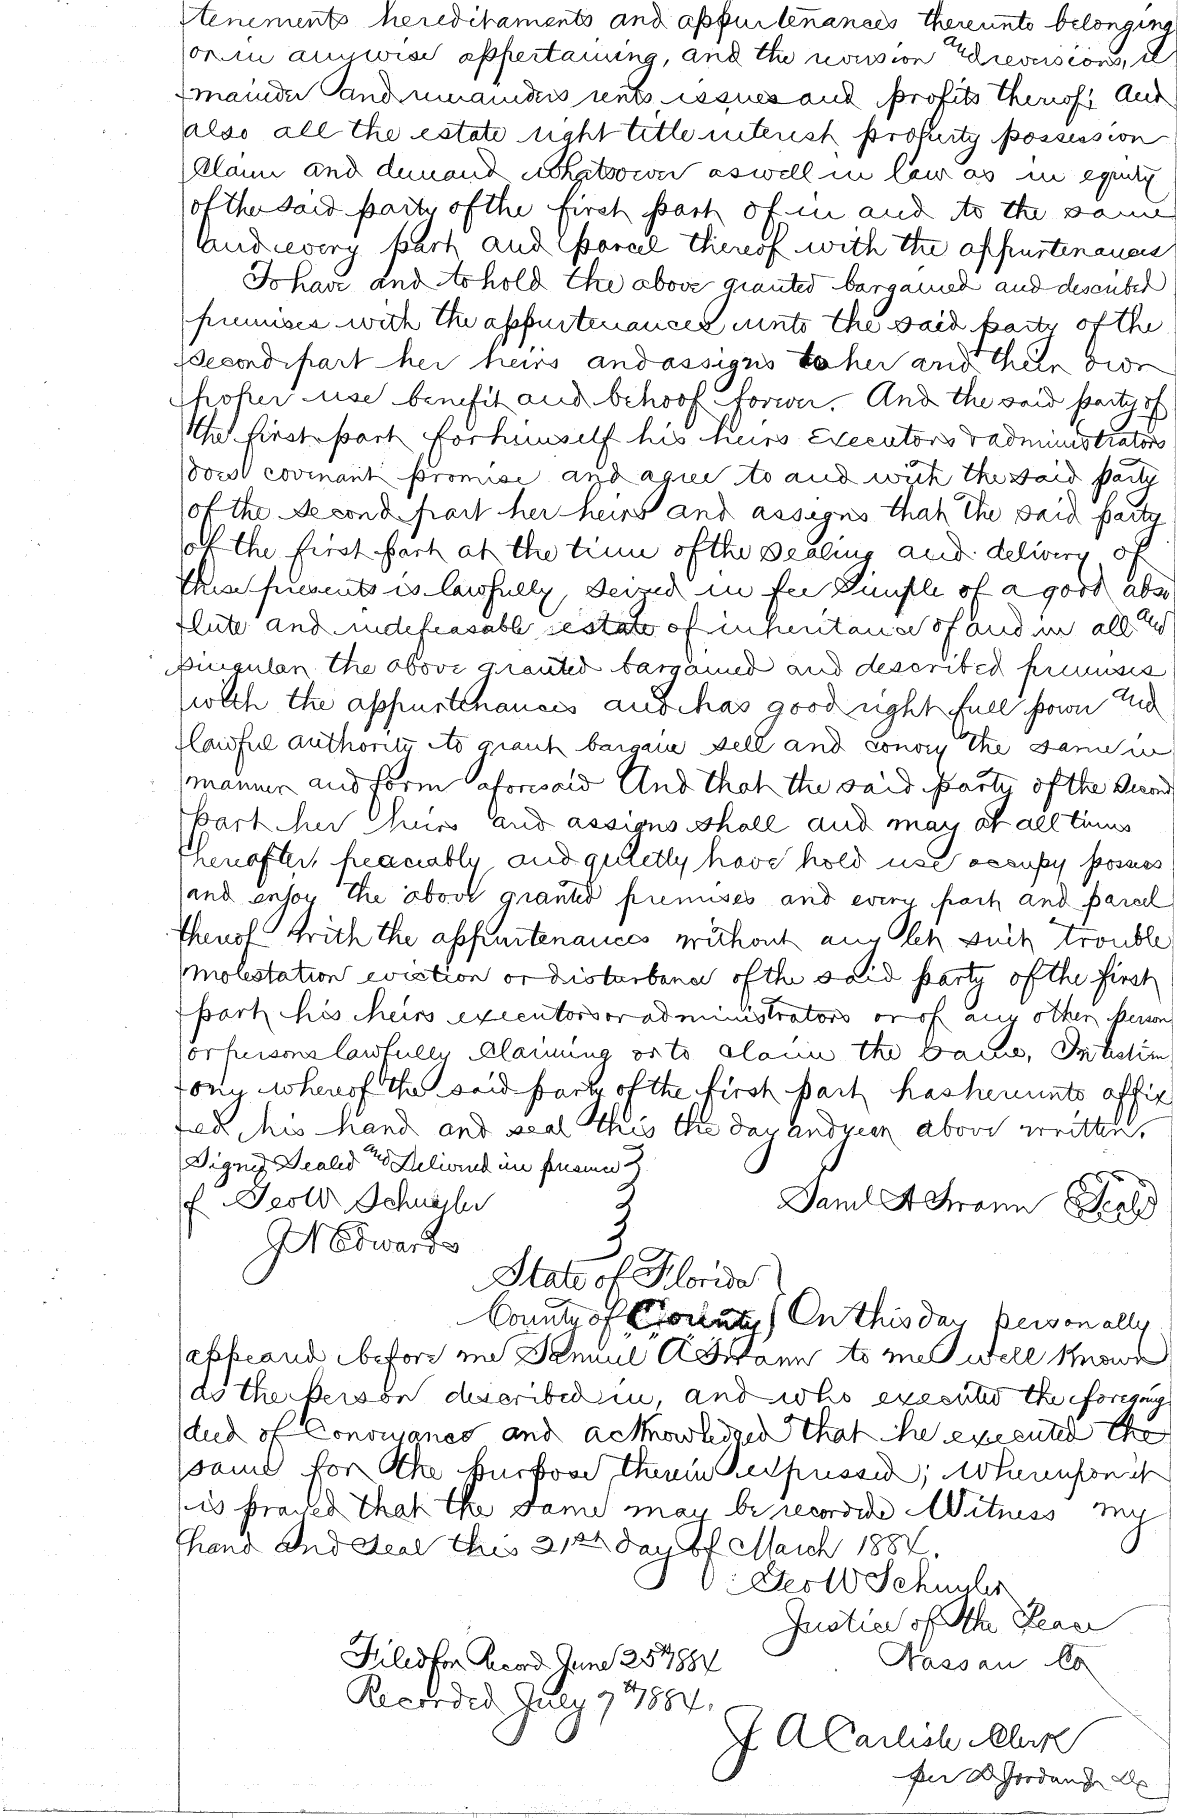 tenements hereditaments and appurtenances thereunto belonging
or in anywise appertaining, and the revision and reversions, re
mainder and remainders rents issues and profits thereof; And
also all the estate right title interest property possession
Claim and demand whatsoever as well in law as in equity
of the said party of the first part of in and to the same
and every part and parcel thereof with the appurtenances
To have and to hold the above granted bargained and described
premises with the appurtenances unto the said party of the
second part her heirs and assigns to her and their own
proper use benefit and behoof forever. And the said party of
the first part for himself his heirs Executors & administrators
does covenant promise and agree to and with the said party
of the second part her heirs and assigns that the said party
of the first part at the time of the sealing and delivery of
these presents is lawfully seized in fee Simple of a good abso
lute and indefeasable estate of inheritance of and in all and
singular the above granted bargained and described premises
with the appurtenances and has good right full power and
lawful authority to grant bargain sell and convey the same in
manner and form aforesaid And that the said party of the second
part her heirs and assigns shall and may at all times
hereafter, peaceably and quietly have hold use occupy possess
and enjoy the above granted premises and every part and parcel
thereof with the appurtenances without any let suit trouble
molestation eviction or disturbance of the said party of the first
part his heirs executors or administrators or of any other person
or persons lawfully Claiming or to claim the same, In testim
ony whereof the said party of the first part has hereunto affix
ed his hand and seal this the day and year above written.
Signed Sealed and Delivered in presence
of Geo W Schuyler Saml A Swann Seal
J N Edwards
State of Florida
County of County On this day personally
appeard before me Samuel A Swann to me well known
as the person described in, and who executed the foregoing
deed of Conveyance and acknowledged that he executed the
same for the purpose therein expressed; whereupon it
is prayed that the same may be recorded Witness my
hand and seal this 21st day of March 1884.
Geo W Schuyler
Justice of the Peace
Filed for Record June 25th 1884 Nassau Co
Recorded July 7th 1884.
J A Carlisle Clerk
per